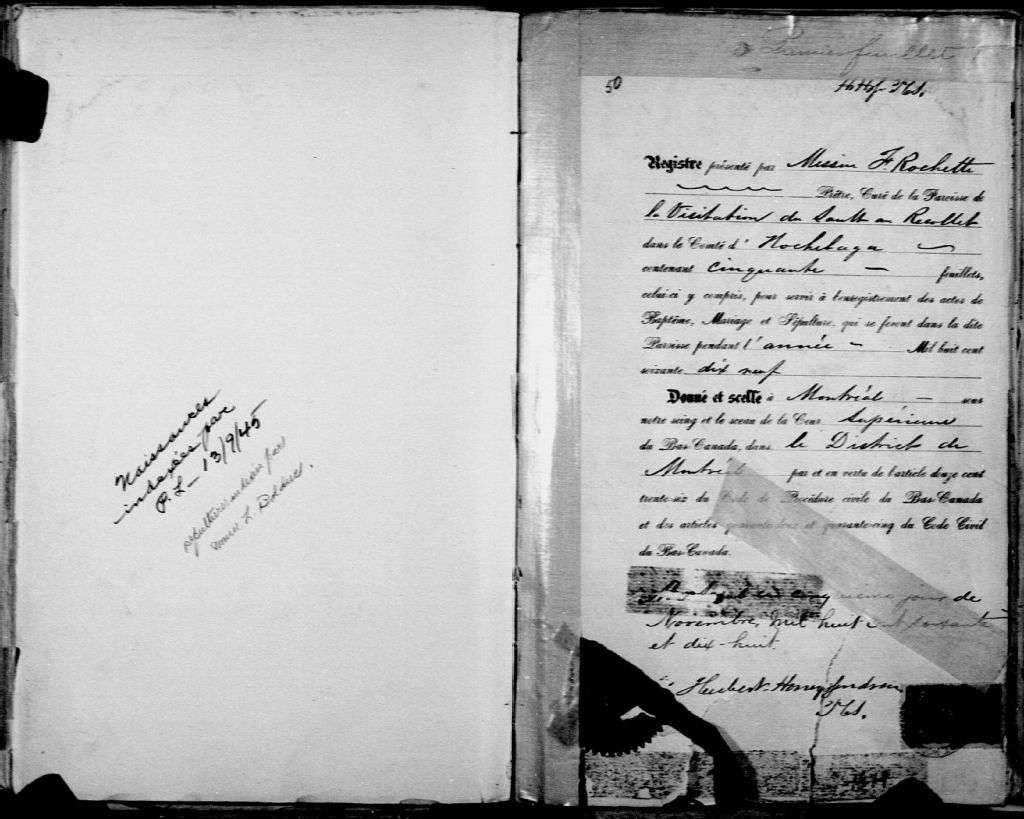 Naissances
indexées par
P. L - 13/9/45
sépultures indexées par
L.
Premier feuillet
50
HHG PCS.
Registre présenté par Messire F. Rochette
Prêtre, Curé de la Paroisse de
la Visitation du Sault au Recollet
dans le Comté d' Hochelaga
contenant cinquante — feuillets,
celui-ci y compris, pour servir à l'enregistrement des actes de
Baptême, Mariage et Sépulture, qui se feront dans la dite
Paroisse pendant l' année - Mil huit cent
soixante dix neuf
Donné et scellé à Montréal — sous
notre seing et le sceau de la Cour Supérieure
du Bas-Canada, dans le District de
Montréal par et en vertu de l'article douze cent
trente-six du Code de Procédure civile du Bas-Canada
et des articles quarante-deux et quarante-cinq du Code Civil
du Bas-Canada.
vingt cinquième jour de
Novembre, mil huit cent soixante
et dix-huit.